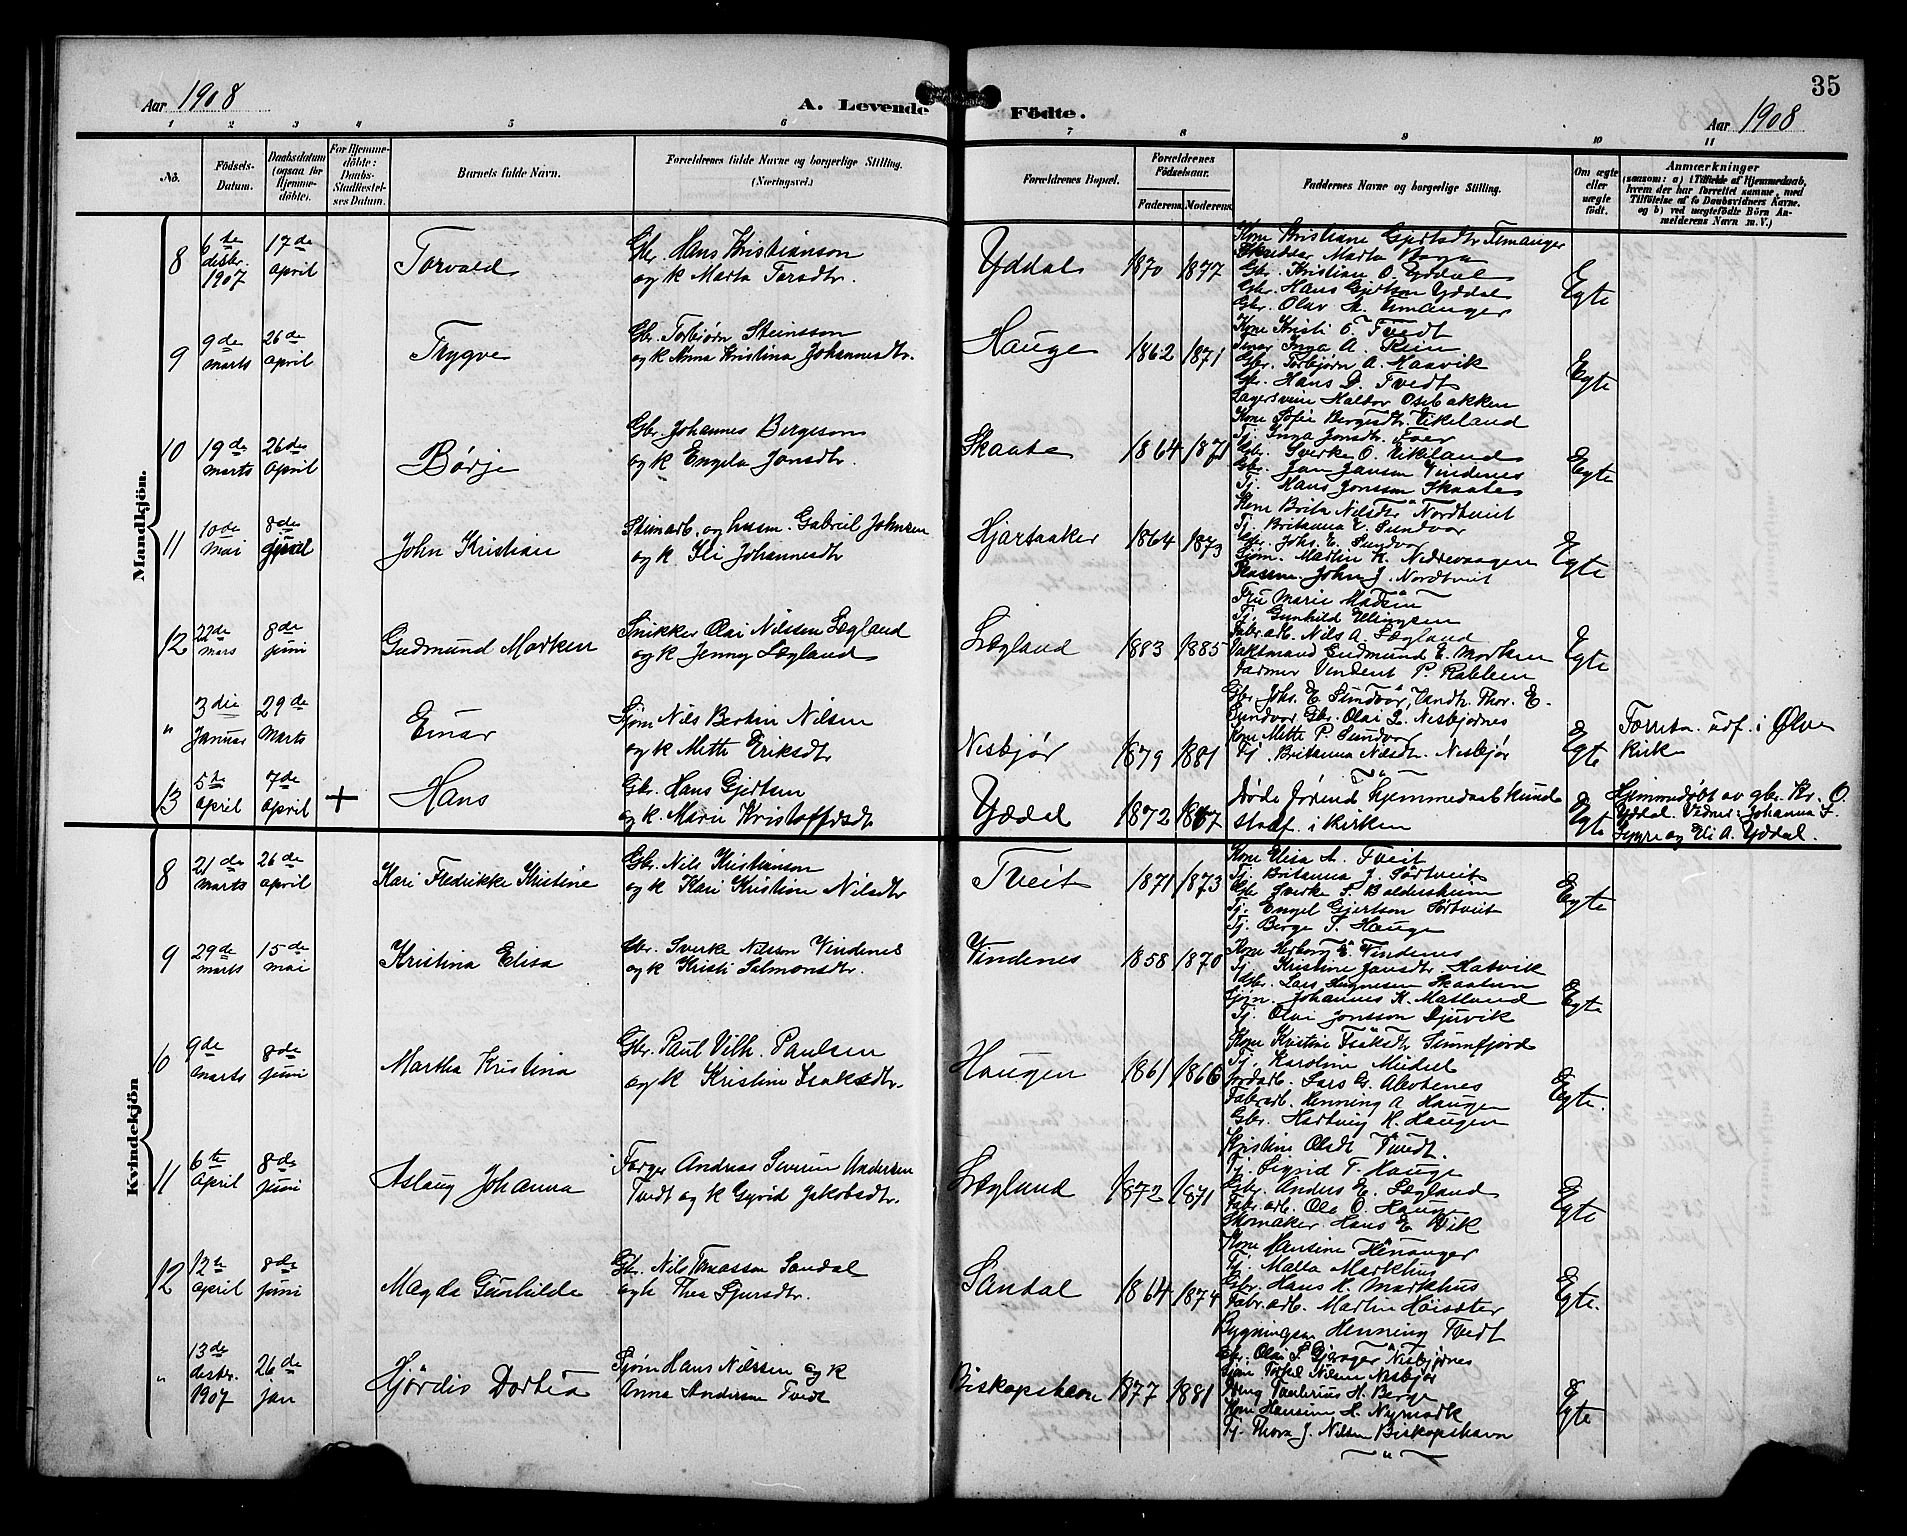 35
Aar 1908
A. Levende Födte.
Aar 1908
1 2 3 4 5 6 7 8 9 10 11
No.
Födsels-Datum.
Daabsdatum (ogsaa for Hjemme-döbte).
For Hjemme-döbte: Daabs-Stadfæstel-ses Datum.
Barnets fulde Navn.
Forældrenes fulde Navne og borgerlige Stilling. (Næringsvei.)
Forældrenes Bopæl.
Forældrenes Födselsaar.
Faderens. Moderens.
Faddernes Navne og borgerlige Stilling.
Om ægte eller uægte födt.
Anmærkninger
(saasom: a) i Tilfælde af Hjemmedaab, hvem der har forrettet samme, med Tilföielse af to Daabsvidners Navne, og b) ved uægtefödte Börn An-melderens Navn m. V.)
Mandkjön.
8
6te desbr. 1907
17de april
Torvald
Gbr. Hans Kristianson
og k Marta Larsdtr.
Yddal
1870 1877
Kone Kristiane Gjertsdtr Timanger
Marta
Gbr. Kristian O. Yddal
Gbr. Hans Gjertson Yddal
Gbr. Olav H. Timanger
Egte
9
9de marts
26de april
Trygve
Gbr. Torbjørn Steinsson
og k Anna Kristina Johannesdtr.
Hauge
1862 1871
Kone Kristi O. Tvedt
Inga A. Rein
Gbr. Torbjørn A. Haavik
Gbr. Hans D. Tvedt
Haldor Osebakken
Egte
10
19de marts
26de april
Børje
Gbr. Johannes Bergeson
og k Engela Jonsdtr.
Skaate
1864 1871
Kone Sofie Bergesdtr. Eikeland
Tj. Inga Jonsdtr.
Gbr. Sverke O. Eikeland
Gbr. Jan Janson Vindenes
Tj. Hans Jonsson Skaate
Egte
11
10de mai
8de juni
John Kristian
Stenarb. og husm. Gabriel Johnsen
og k Eli Johannesdtr
Hjartaaker
1864 1873
Kone Brita Nilsdtr Nordtveit
Tj. Britanna E. Sundvor
Gbr. Johs. E. Sundvor
Sjøm. Martin K. Nedrevaagen
John J. Nordtveit
Egte
12
22de mars
8de juni
Gudmund Morken
Snikker Olai Nilsen Lægland
og k Jenny Lægland
Lægland
1883 1885
Fru Marie Madsen
Tj. Gunhild Ellingsen
Fabr.arb. Nils A. Lægland
Vaktmand Gudmund E. Morken
Farmer Vindent P. Rabben
Egte
"
3die Januar
29de Marts
Einar
Sjøm Nils Bertin Nilsen
og k Mette Eriksdtr
Nesbjør
1879 1881
Gbr. Johs. E. Sundvor, Landh. Thor. E.
Sundvor Gbr. Olai L. Nesbjørnes
Kone Mette P. Sundvor
Tj. Britanna Nilsdtr. Nesbjør
Egte
Forretn. udf. i Ølve
kirk
13
5te april
7de april
+
Hans
Gbr. Hans Gjertsen
og k. Marie Kristoffersdtr
Yddal
1872 1867
Døde førend hjemmedaab kunde
stadf. i kirken
Egte
Hjemmedøbt av gbr. Kr. O.
Yddal. Vidner: Johanna L.
og Eli A. Yddal.
Kvindekjön
8
21de marts
26de april
Kari Fredrikke Kristine
Gbr. Nils Kristianson
og k Kari Kristine Nilsdtr
Tveit
1871 1873
Kone Elisa A. Tveit
Tj. Britanna J. Sørtveit
Gbr Sverke S. Baldersheim
Tj. Engel Gjertson Sørtveit
Tj. Berge S. Hauge
Egte
9
29de marts
15de mai
Kristina Elisa
Gbr. Sverke Nilsson Vindenes
og k Kristi Salmonsdtr.
Vindenes
1858 1870
Kone Herborg E. Vindenes
Tj. Kristine Jansdtr. Hatvik
Gbr. Lars Skaatun
Sjøm. Johannes K. Matland
Tj. Olai Jonsson Djuvik
Egte
10
9de marts
8de juni
Martha Kristina
Gbr. Paul Vilh. Paulsen
og k Kristine Isaksdtr.
Haugen
1861 1866
Kone Kristine Isaksdtr
Tj. Karoline
Jordarb. Lars G.
Fabr.arb. Henning A Haugen
Gbr. Hartvig H. Haugen
Egte.
11
6te april
8de juni
Aslaug Johanna
Farger Andreas Severin Andersen
Tvedt og k Gyrid Jakobsdtr.
Lægland
1872 1871
Kristine Olsdt Tvedt.
Tj. Sigrid T. Hauge
Gbr. Anders E. Lægland
Fabr.arb. Ole O. Hauge
Skomaker Hans E. Vik
Egte
12
12te april
8de juni
Magda Gunhilda
Gbr. Nils Tomasson Sandal
og k Thea Sjursdtr.
Sandal
1864 1874
Kone Hansine Henanger
Tj. Malla Markhus
Gbr. Hans H. Markhus
Fabr.arb. Martin Høisæter
Bygningsm Henning Tvedt
Egte.
"
13de desbr. 1907
26de jan
Hjørdis Dortea
Sjøm Hans Nilssen og k
Anna Andersen Tvedt
Biskopshavn
1877 1881
Gbr. Olai S. Nesbjørnes
Sjøm Torkel Nilsen Nesbjør
H. Berge
Kone Hansine H. Nymark
Tj. Thora J. Nilsen Biskopshavn
"
Egte